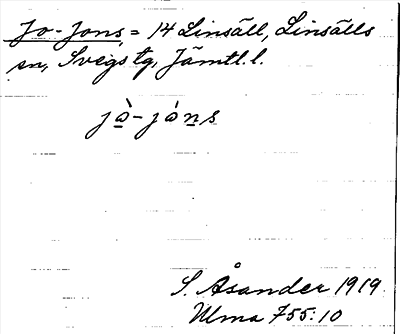 Jo-Jons, = 14 Linsäll, Linsälls
sn, Svegs tg, Jämtl. l.
jò̲-jón̲s̲
S. Åsander 1919.
Ulma 755:10